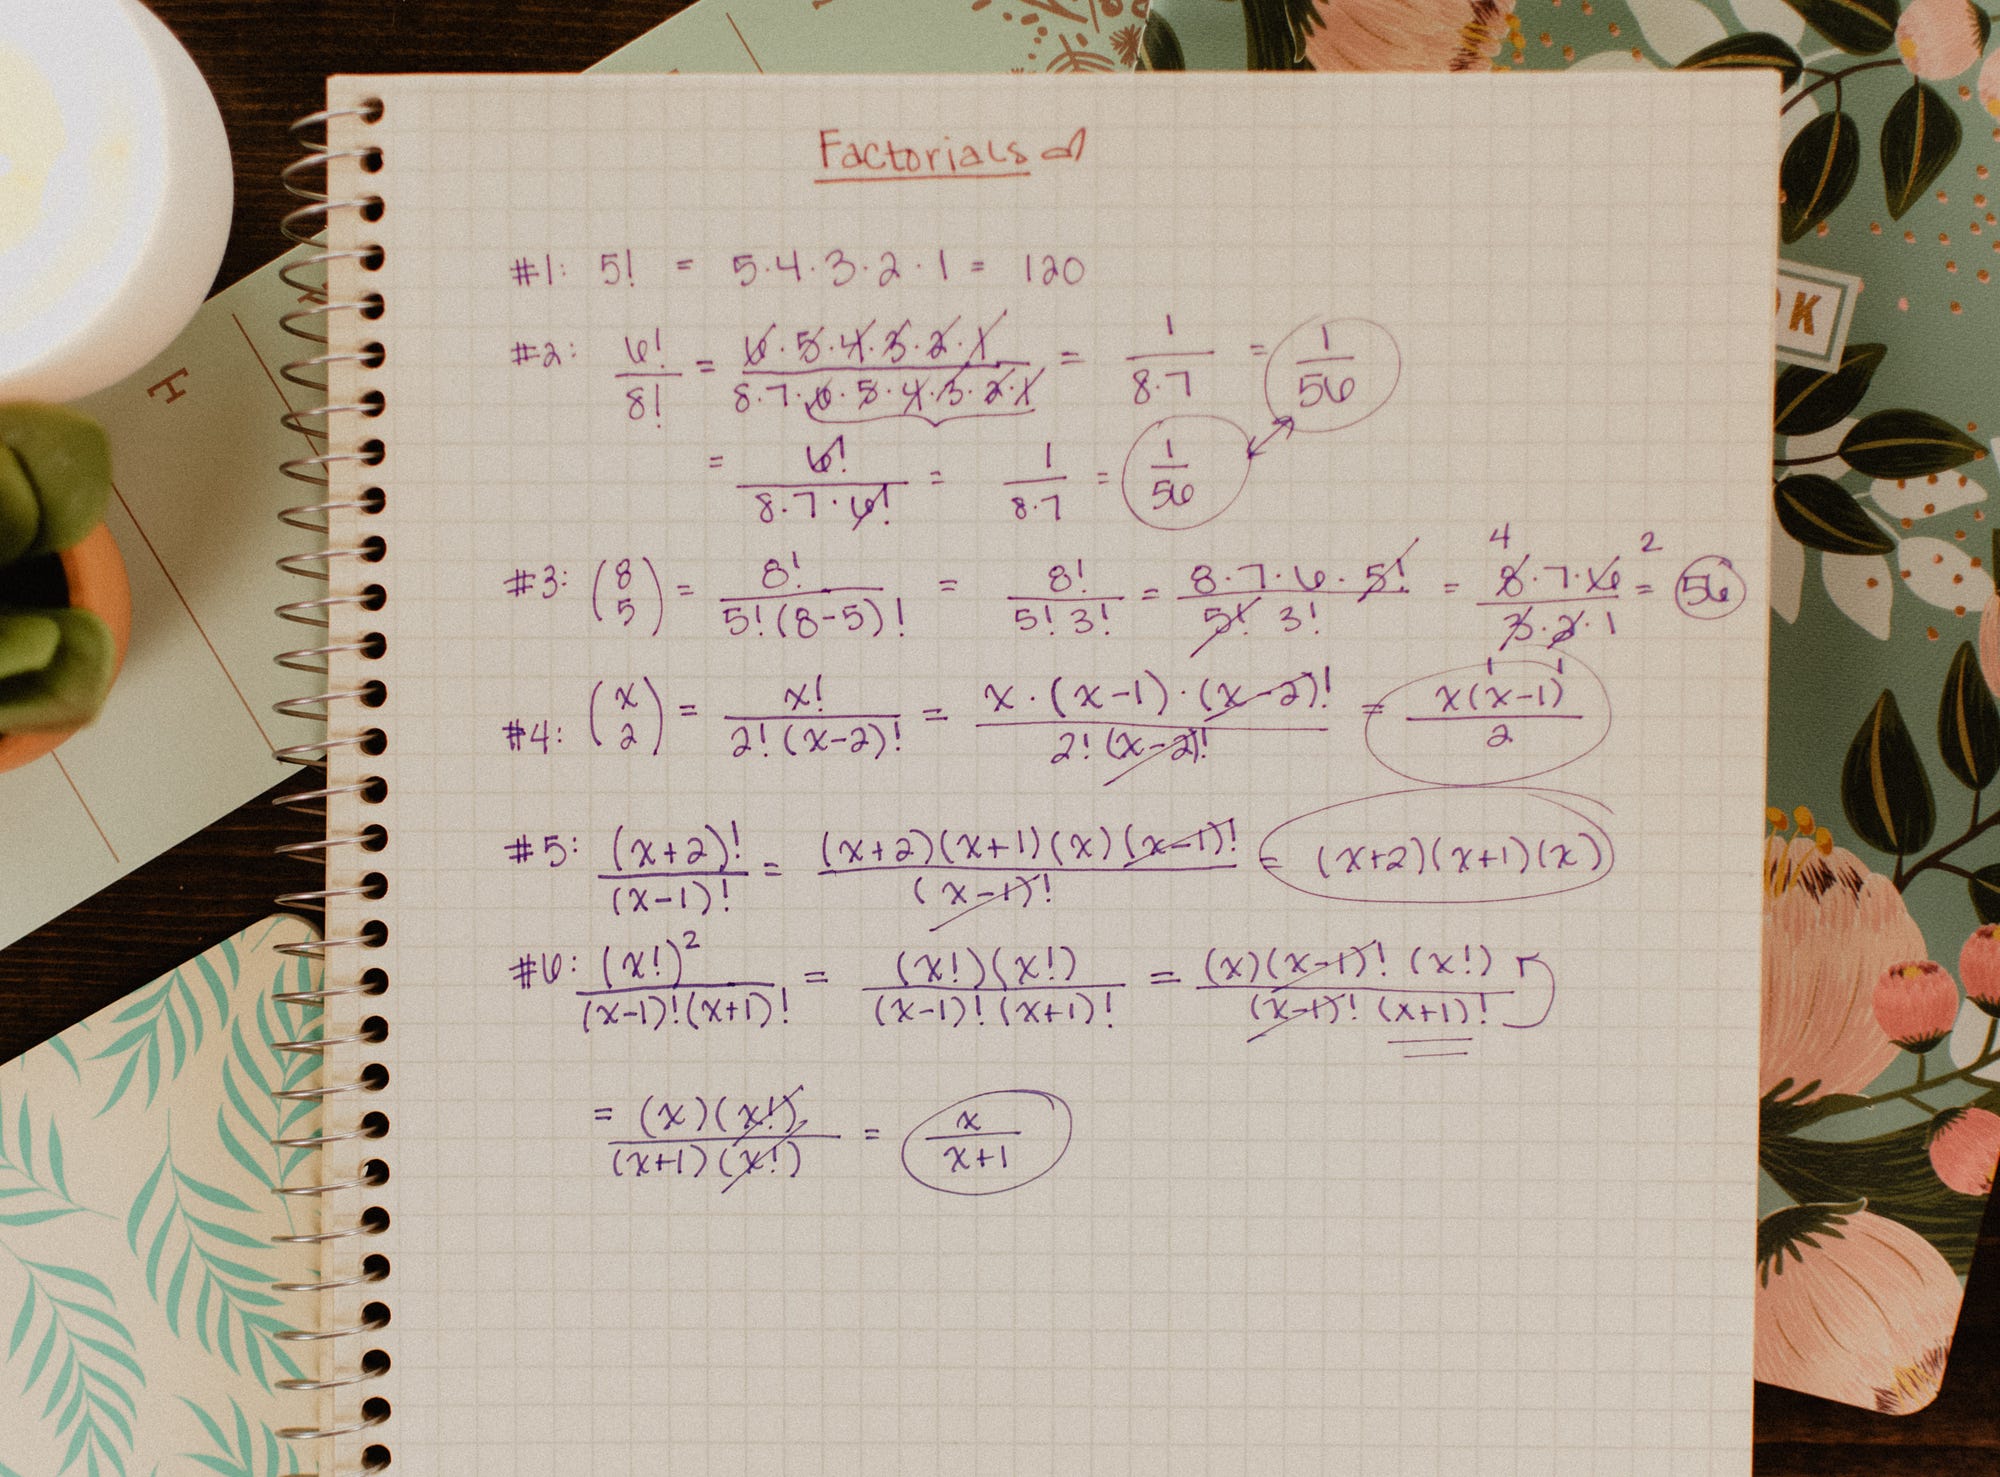 Factorials
#1: 5! = 5·4·3·2·1 = 120
#2: 6!/8! = 6·5·4·3·2·1/8·7·6·5·4·3·2·1 = 1/8·7 = 1/56
= 6!/8·7·6! = 1/8·7 = 1/56
#3: (8 5) = 8!/5!(8-5)! = 8!/5!3! = 8·7·6·5!/5!3! = 4 8·7·6 2/3·2·1 = 56
#4: (x 2) = x!/2!(x-2)! = x·(x-1)·(x-2)!/2!(x-2)! = x(x-1)/2
#5: (x+2)!/(x-1)! = (x+2)(x+1)(x)(x-1)!/(x-1)! = (x+2)(x+1)(x)
#6: (x!)²/(x-1)!(x+1)! = (x!)(x!)/(x-1)!(x+1)! = (x)(x-1)!(x!)/(x-1)!(x+1)!
= (x)(x!)/(x+1)(x!) = x/x+1
H
K